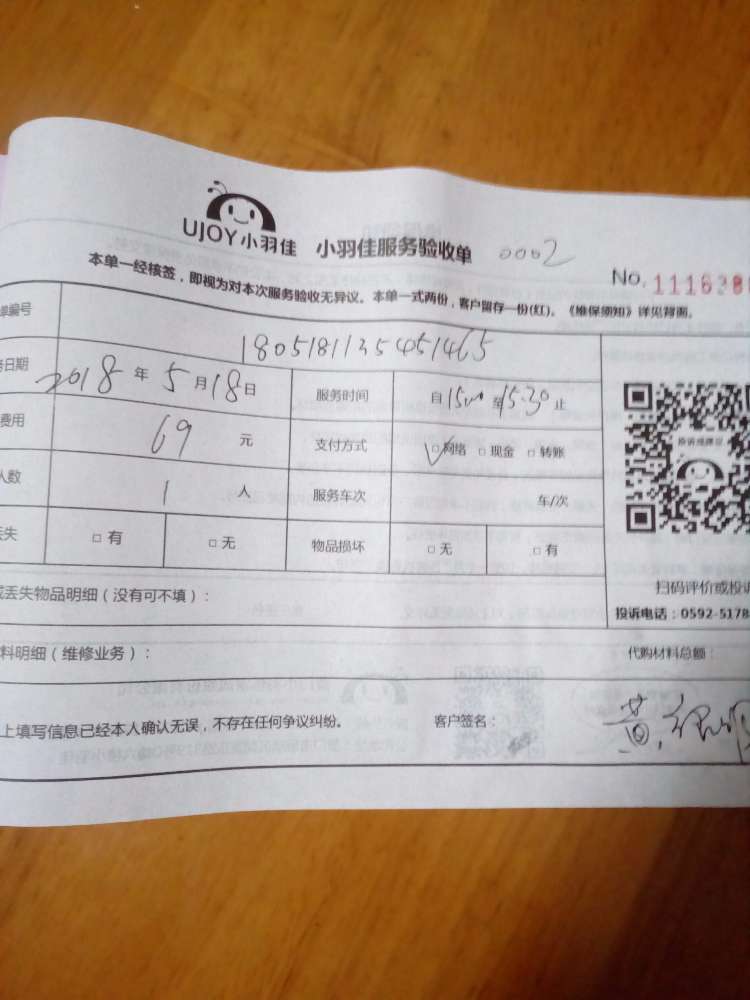 UJOY小羽佳 小羽佳服务验收单 0002
No. 111638
本单一经核签，即视为对本次服务验收无异议。本单一式两份，客户留存一份(红)。《维保须知》详见背面。
单编号 1805181135451465
务日期 2018 年 5 月 18 日 服务时间 自 15:00 至 15:30 止
费用 69 元 支付方式 ☑网络 □现金 □转账
人数 1 人 服务车次 车/次
丢失 □有 □无 物品损坏 □无 □有
投诉或建议
扫码评价或投诉
或丢失物品明细（没有可不填）：
投诉电话：0592-5178
料明细（维修业务）： 代购材料总额：
上填写信息已经本人确认无误，不存在任何争议纠纷。 客户签名： 黄